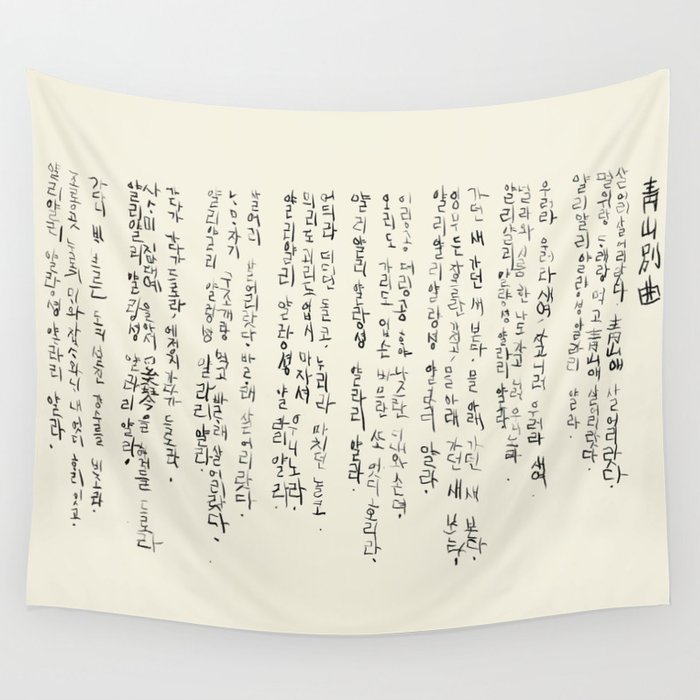 靑山別曲
살어리 살어리랏다 靑山애 살어리랏다.
멀위랑 ᄃᆞ래랑 먹고 靑山애 살어리랏다
얄리얄리 얄랑셩 얄라리 얄라.
우러라 우러라 새여 자고 니러 우러라 새여
널라와 시름 한 나도 자고 니러 우니노라
얄리얄리 얄랑셩 얄라리 얄라.
가던 새 가던 새 본다. 믈 아래 가던 새 본다.
잉무든 장글란 가지고 믈 아래 가던 새 본다.
얄리얄리 얄랑셩 얄라리 얄라.
이링공 뎌링공 ᄒᆞ야 나즈란 디내와손뎌.
오리도 가리도 업슨 바므란 ᄯᅩ 엇디 호리라.
얄리얄리 얄랑셩 얄라리 얄라.
어듸라 더디던 돌코. 누리라 마치던 돌코.
믜리도 괴리도 업시 마자셔 우니노라.
얄리얄리 얄랑셩 얄라리 얄라.
살어리 살어리랏다. 바ᄅᆞ래 살어리랏다.
구조개랑 먹고 바ᄅᆞ래 살어리랏다.
얄리얄리 얄랑셩 얄라리 얄라.
가다가 가다가 드로라. 에졍지 가다가 드로라.
사ᄉᆞ미 짐대예 올아셔 을 혀거를 드로라
얄리얄리 얄랑셩 얄라리 얄라.
가다니 ᄇᆡ브른 도긔 설진 강수를 비조라.
조롱곳 누로기 ᄆᆡ와 잡ᄉᆞ와니 내 엇디 ᄒᆞ리잇고.
얄리얄리 얄랑셩 얄라리 얄라.